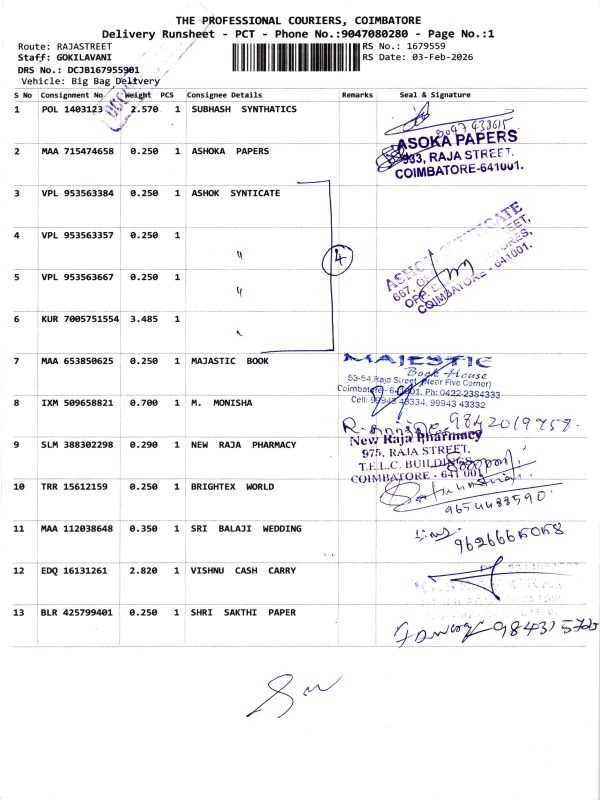 THE PROFESSIONAL COURIERS, COIMBATORE
Delivery Runsheet - PCT - Phone No.:9047080280 - Page No.:1
Route: RAJASTREET
RS No.: 1679559
Staff: GOKILAVANI
RS Date: 03-Feb-2026
DRS No.: DCJB167955901
Vehicle: Big Bag Delivery
S No Consignment No Weight PCS Consignee Details Remarks Seal & Signature
1 POL 1403123 2.570 1 SUBHASH SYNTHATICS
2 MAA 715474658 0.250 1 ASHOKA PAPERS
ASOKA PAPERS
933, RAJA STREET,
COIMBATORE-641001.
3 VPL 953563384 0.250 1 ASHOK SYNTICATE
4 VPL 953563357 0.250 1 "
4
5 VPL 953563667 0.250 1 "
COIMBATORE - 641001.
6 KUR 7005751554 3.485 1 "
7 MAA 653850625 0.250 1 MAJASTIC BOOK
MAJESTIC
Book House
53-54,Raja Street, (Near Five Corner)
Coimbatore- 641001. Ph: 0422-2384333
Cell: 99943 43334, 99943 43332
8 IXM 509658821 0.700 1 M. MONISHA
9842019758.
9 SLM 388302298 0.290 1 NEW RAJA PHARMACY
New Raja Pharmacy
975, RAJA STREET,
T.E.L.C. BUILDINGS
COIMBATORE - 641 001
10 TRR 15612159 0.250 1 BRIGHTEX WORLD
9654488590.
11 MAA 112038648 0.350 1 SRI BALAJI WEDDING
12 EDQ 16131261 2.820 1 VISHNU CASH CARRY
13 BLR 425799401 0.250 1 SHRI SAKTHI PAPER